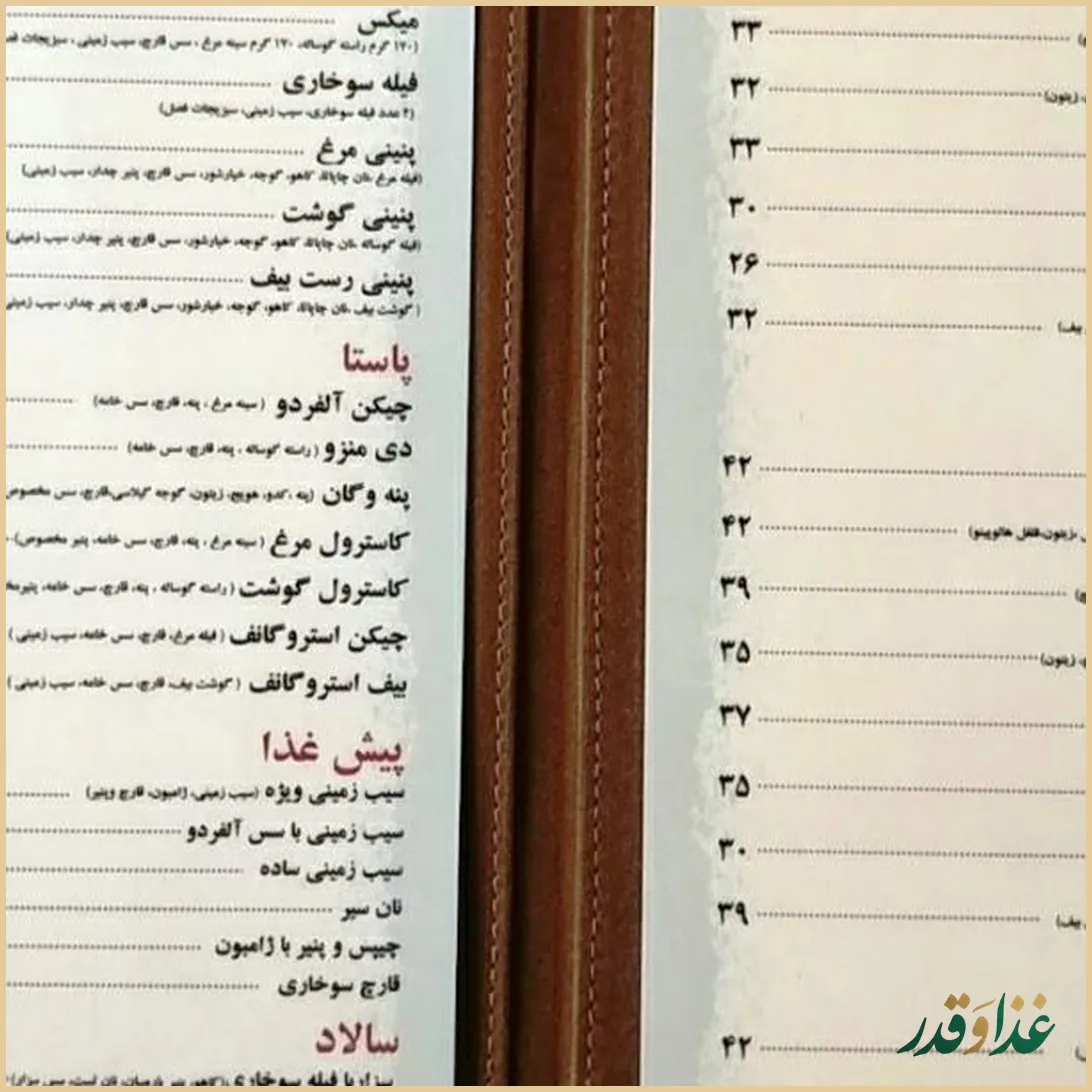 ۳۳
۳۲ زیتون)
۳۳
۳۰
۲۶
۳۲ بیف)
۴۲
۴۲ زیتون،فلفل هالوپینو)
۳۹
۳۵ زیتون)
۳۷
۳۵
۳۰
۳۹ بیف)
۴۲
میکس
(۱۲۰ گرم راسته گوساله، ۱۲۰ گرم سینه مرغ ، سس قارچ، سیب زمینی ، سبزیجات
فیله سوخاری
(۴ عدد فیله سوخاری، سیب زمینی، سبزیجات فصل)
پنینی مرغ
(فیله مرغ ،نان چاپاتا، کاهو، گوجه، خیارشور، سس قارچ، پنیر چدار، سیب زمینی)
پنینی گوشت
(فیله گوساله ،نان چاپاتا، کاهو، گوجه، خیارشور، سس قارچ، پنیر چدار، سیب زمینی)
پنینی رست بیف
( گوشت بیف ،نان چاپاتا، کاهو، گوجه، خیارشور، سس قارچ، پنیر چدار، سیب زمینی
پاستا
چیکن آلفردو ( سینه مرغ ، پنه، قارچ، سس خامه)
دی منزو ( راسته گوساله ، پنه، قارچ، سس خامه)
پنه وگان (پنه ،کدو، هویج، زیتون، گوجه گیلاسی،قارچ، سس مخصوص
کاسترول مرغ ( سینه مرغ ، پنه، قارچ، سس خامه، پنیر مخصوص)
کاسترول گوشت ( راسته گوساله ، پنه، قارچ، سس خامه،
چیکن استروگانف ( فیله مرغ، قارچ، سس خامه، سیب زمینی )
بیف استروگانف ( گوشت بیف، قارچ، سس خامه، سیب زمینی )
پیش غذا
سیب زمینی ویژه (سیب زمینی، ژامبون، قارچ وپنیر)
سیب زمینی با سس آلفردو
سیب زمینی ساده
نان سیر
چیپس و پنیر با ژامبون
قارچ سوخاری
سالاد
سزاربا فیله سوخاری
غذا و قدر